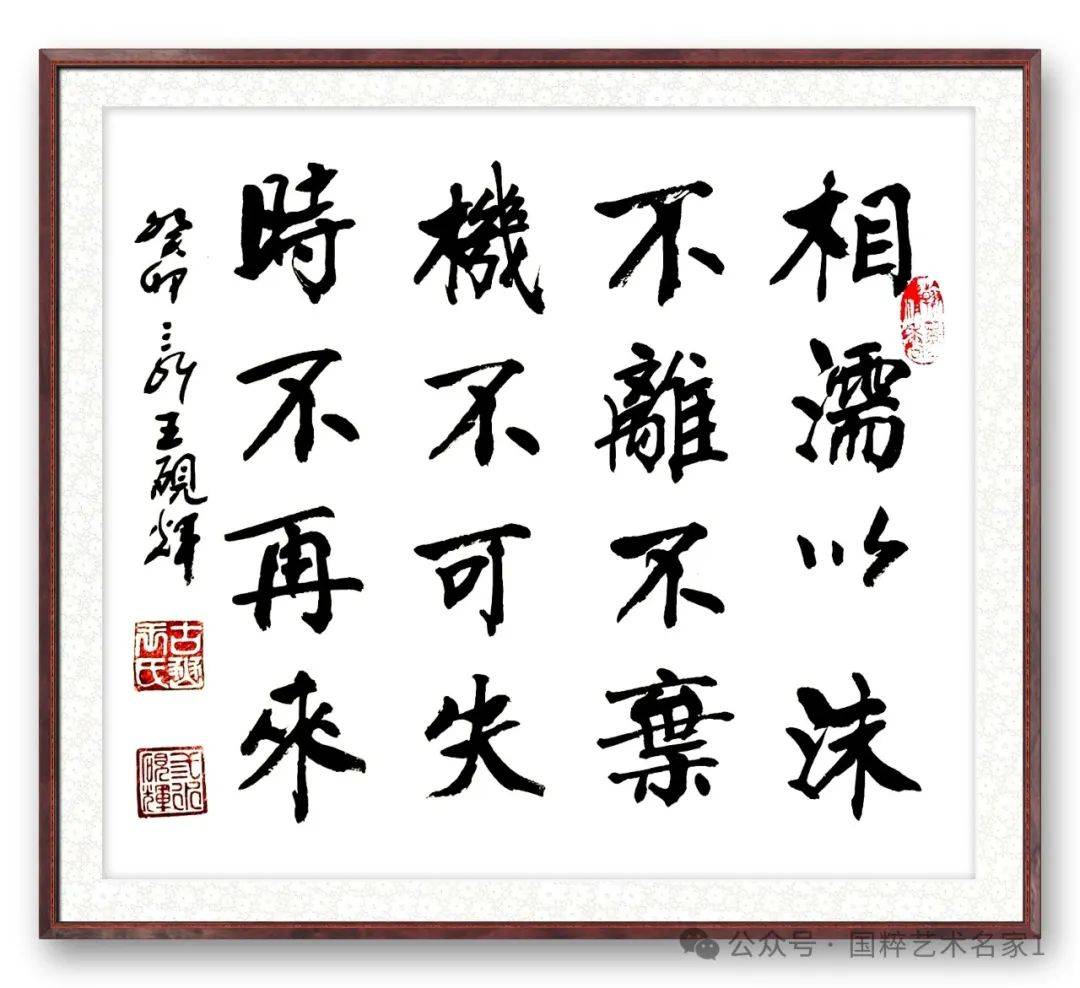 相濡以沫
不離不棄
機不可失
時不再來
癸卯
王硯輝
公众号 · 国粹艺术名家1